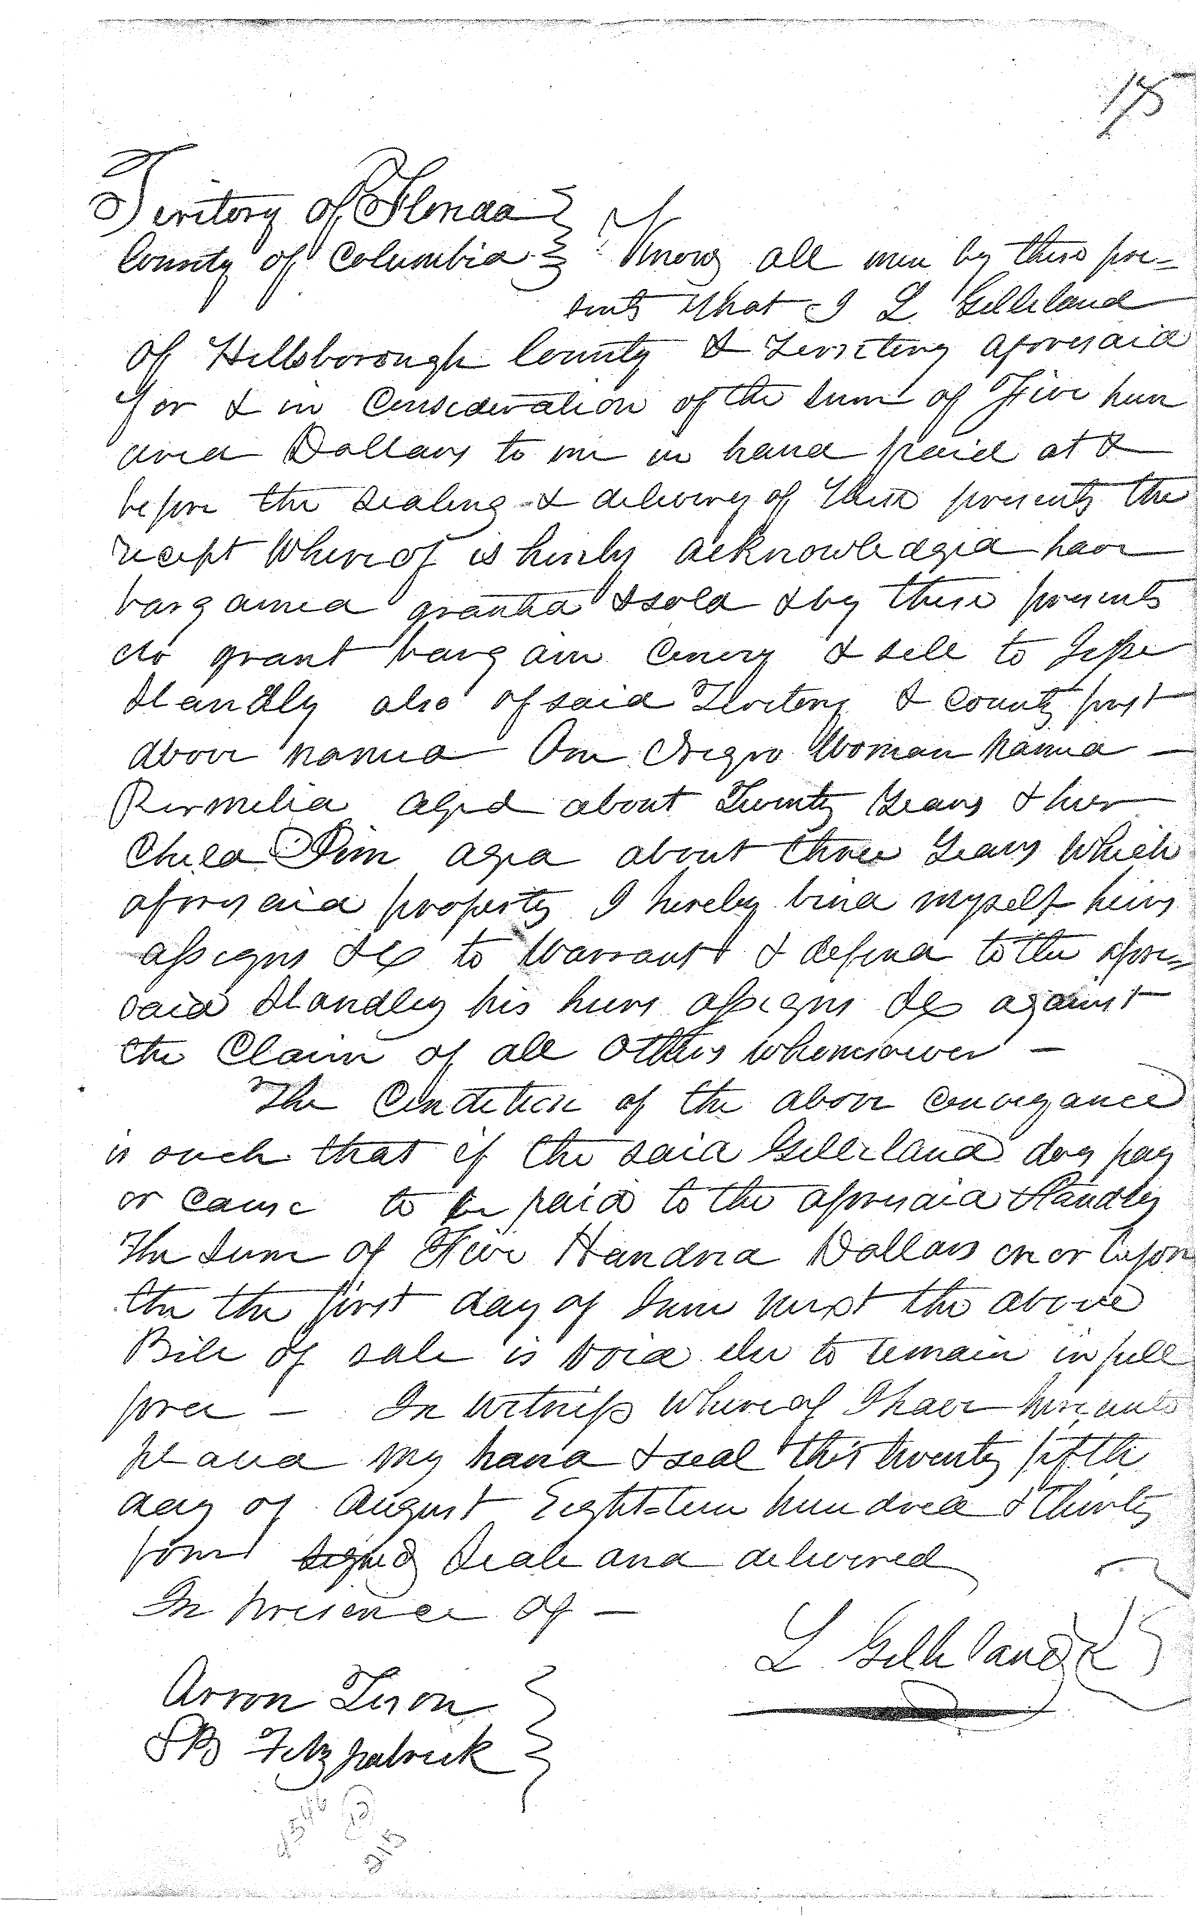 175
Territory of Florida
County of Columbia Know all men by these pre-
sents that I L Gilleland
of Hillsborough County & Territory aforesaid
for & in Consideration of the sum of Five hun
dred Dollars to me in hand paid at &
before the sealing & delivery of these presents the
receipt whereof is hereby acknowledged have
bargained granted & sold & by these presents
do grant bargain convey & sell to Jesse
Standly also of said Territory & County first
above named One Negro Woman named
Permelia aged about Twenty Years & her
Child Jim aged about three Years which
aforesaid property I hereby bind myself heirs
assigns &c to Warrant & defend to the afore=
said Standley his heirs assigns &c against
the Claim of all others whomsoever —
The Condition of the above conveyance
is such that if the said Gilleland does pay
or cause to be paid to the aforesaid Standley
The Sum of Five Hundred Dollars on or before
the the first day of June next the above
Bill of sale is void else to remain in full
force — In witness whereof I have hereunto
placed my hand & seal this twenty fifth
day of August Eighteen hundred & thirty
four signed Seale and delivered
In presence of —
L Gilleland
Arron Tison
SB Fitzpatrick
4546 12
215